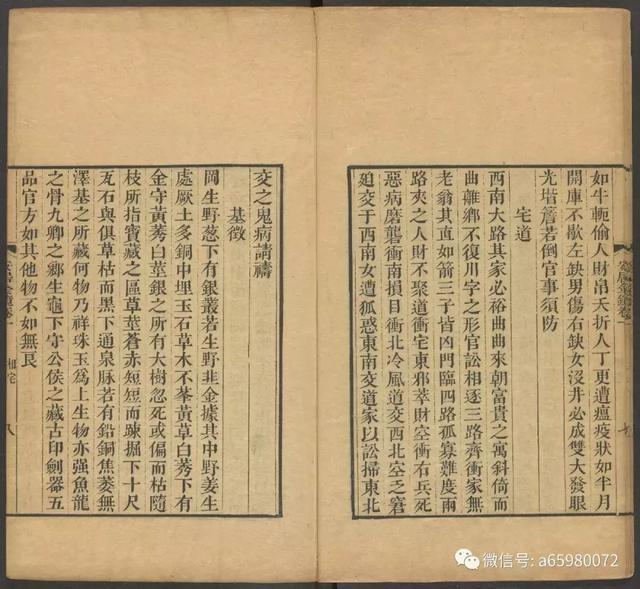 如牛軛偷人財帛夭折人丁更遭瘟疫狀如半月
開庫不歇左缺男傷右缺女沒井必成雙大發眼
光塔簷若倒官事須防
宅道
西南大路其家必裕曲曲來朝富貴之寓斜倚而
曲離鄉不復川字之形官訟相逐三路齊衝家無
老翁其直如箭三子皆凶門臨四路孤寡難度兩
路夾之人財不聚道衝宅東邪萃財空衝右兵死
惡病磨礱衝南損目衝北冷風道交西北空之窘
廹交于西南女遭狐惑東南交道家以訟掃東北
七
交之鬼病請禱
基徵
岡生野葱下有銀叢若生野韭金據其中野姜生
處厥土多銅中埋玉石草木不峯黃草白莠下有
金守黃莠白莖銀之所有大樹忽死或偏而枯隨
枝所指寶藏之區草莖蒼赤短短而疎掘下十尺
瓦石與俱草枯而黑下通泉脉若有鉛銅焦萎無
澤基之所藏何物乃祥珠玉爲上生物亦强魚龍
之骨九卿之鄉生龜下守公侯之藏古印劍器五
品官方如其他物不如無良
相宅
八
微信号: a65980072